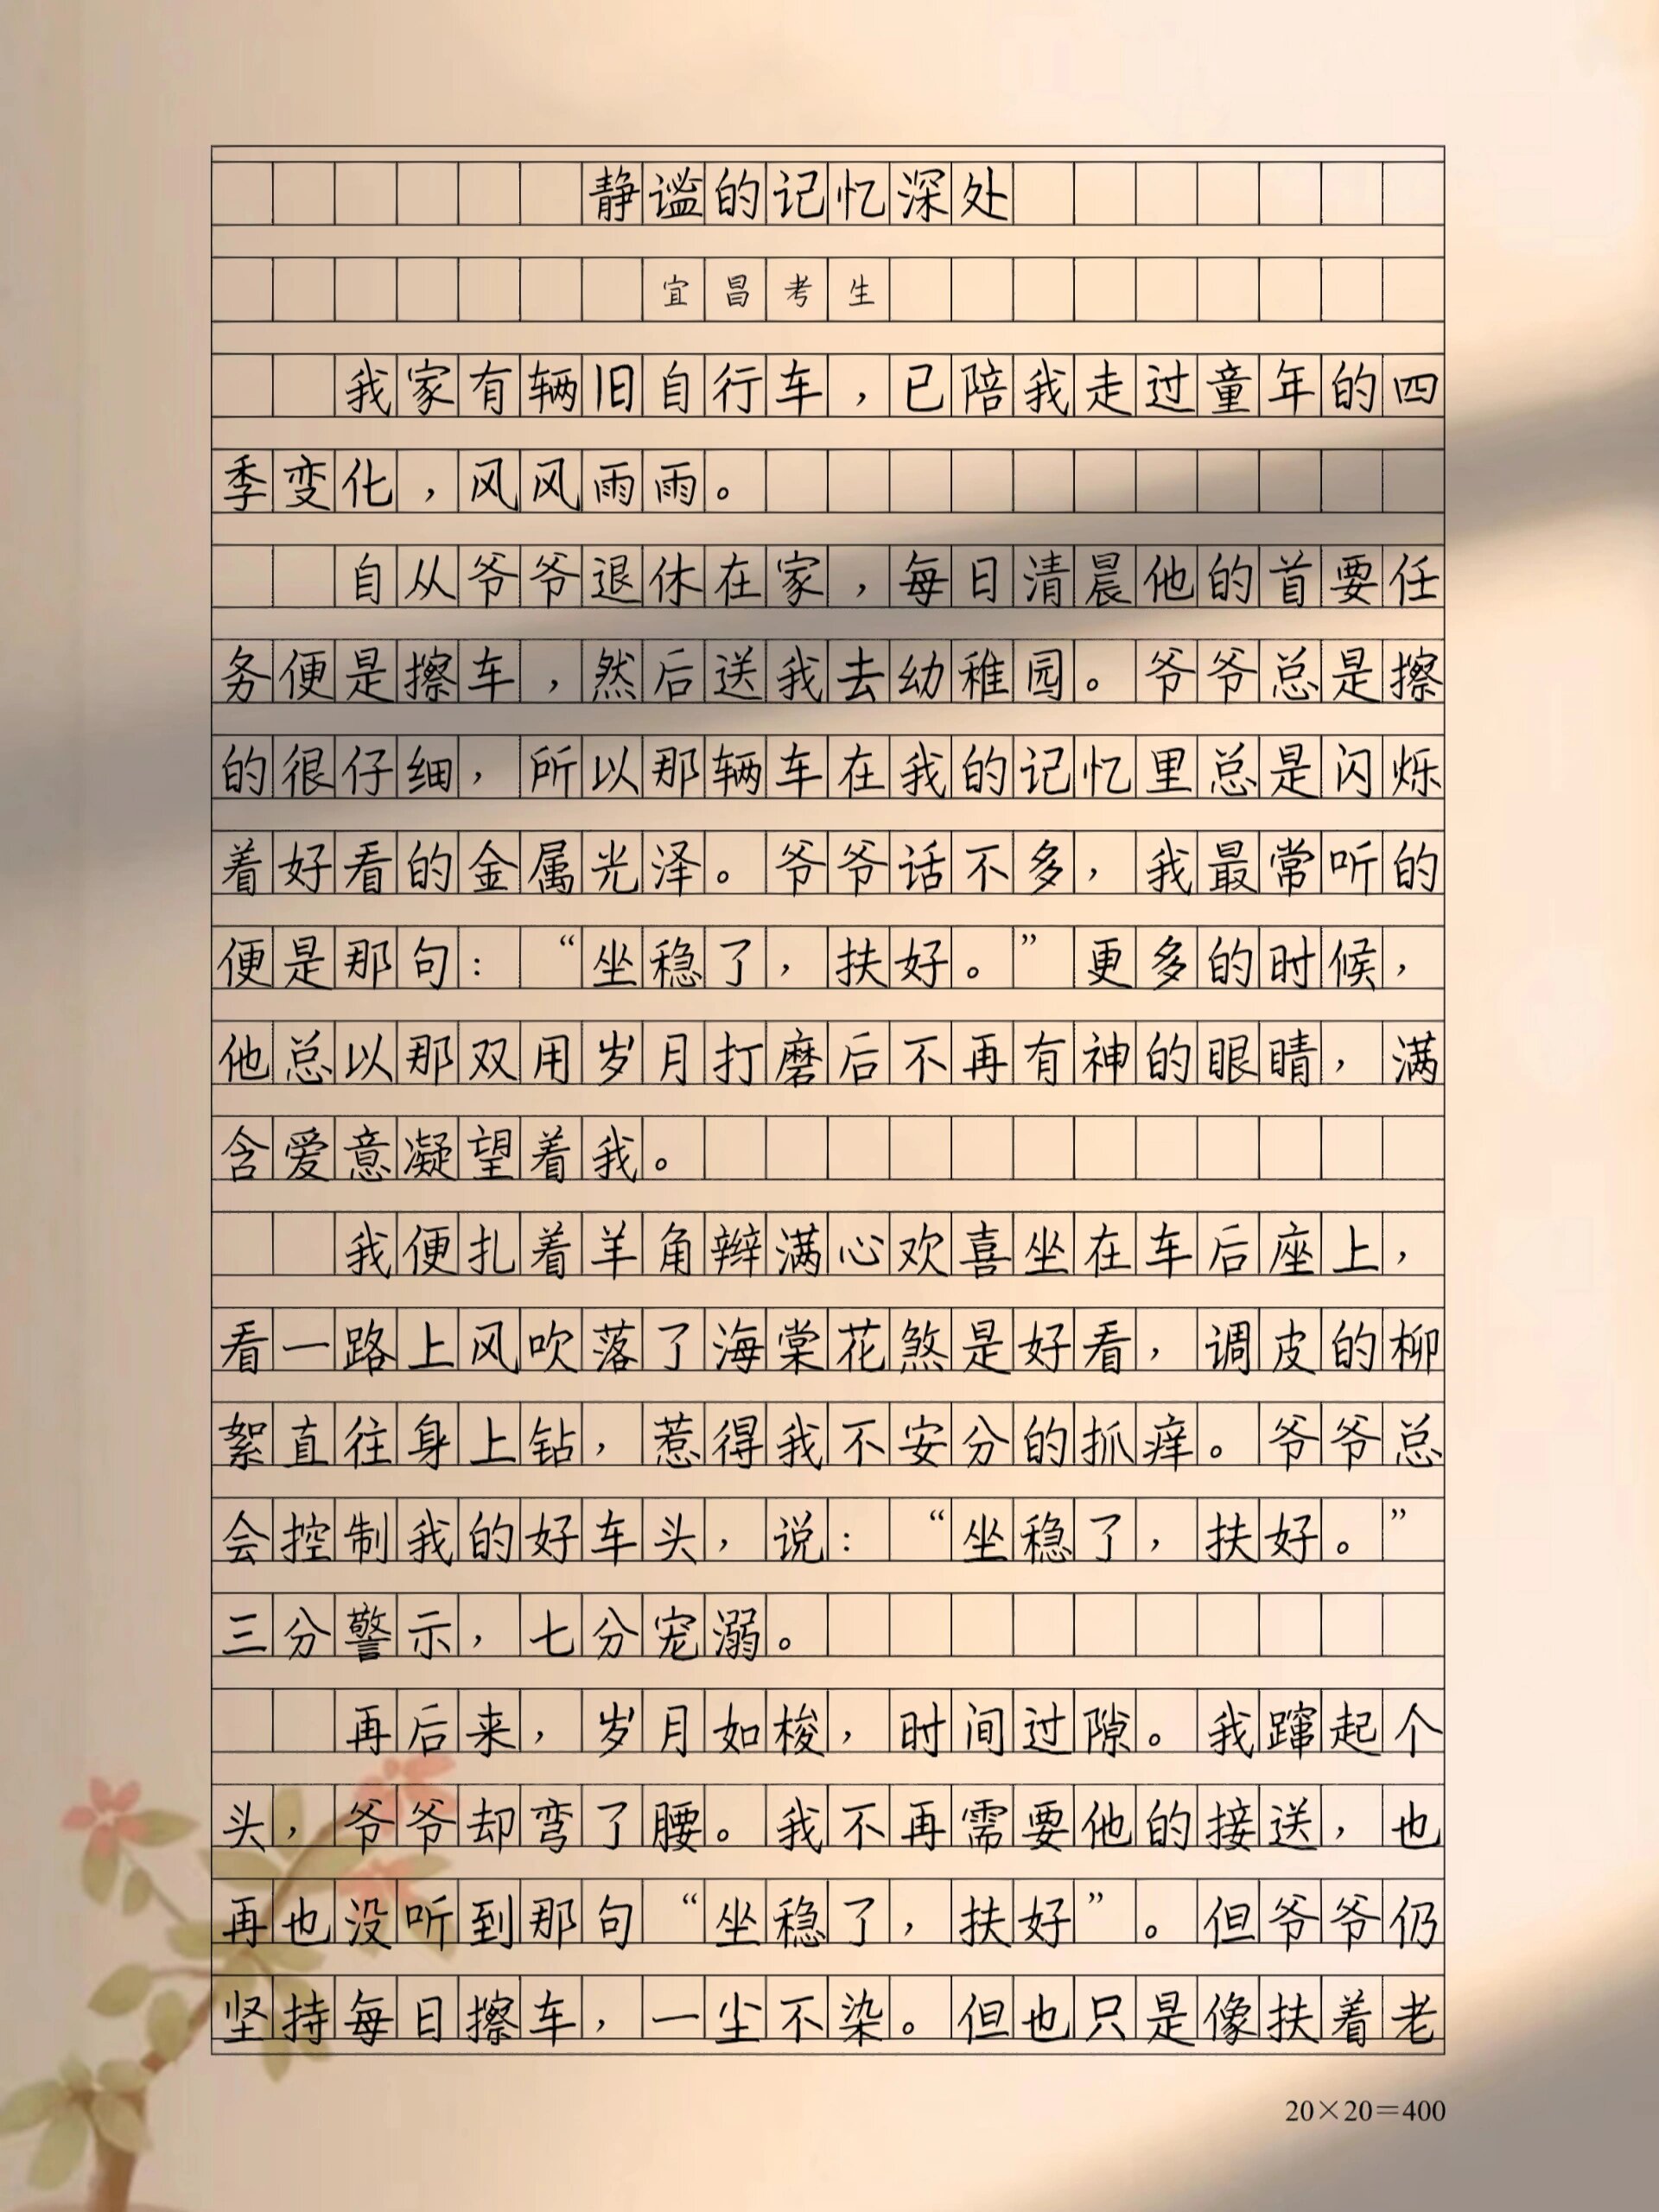 静谧的记忆深处
宜昌考生
我家有辆旧自行车，已陪我走过童年的四
季变化，风风雨雨。
自从爷爷退休在家，每日清晨他的首要任
务便是擦车，然后送我去幼稚园。爷爷总是擦
的很仔细，所以那辆车在我的记忆里总是闪烁
着好看的金属光泽。爷爷话不多，我最常听的
便是那句：“坐稳了，扶好。”更多的时候，
他总以那双用岁月打磨后不再有神的眼睛，满
含爱意凝望着我。
我便扎着羊角辫满心欢喜坐在车后座上，
看一路上风吹落了海棠花煞是好看，调皮的柳
絮直往身上钻，惹得我不安分的抓痒。爷爷总
会控制我的好车头，说：“坐稳了，扶好。”
三分警示，七分宠溺。
再后来，岁月如梭，时间过隙。我蹿起个
头，爷爷却弯了腰。我不再需要他的接送，也
再也没听到那句“坐稳了，扶好”。但爷爷仍
坚持每日擦车，一尘不染。但也只是像扶着老
20×20=400